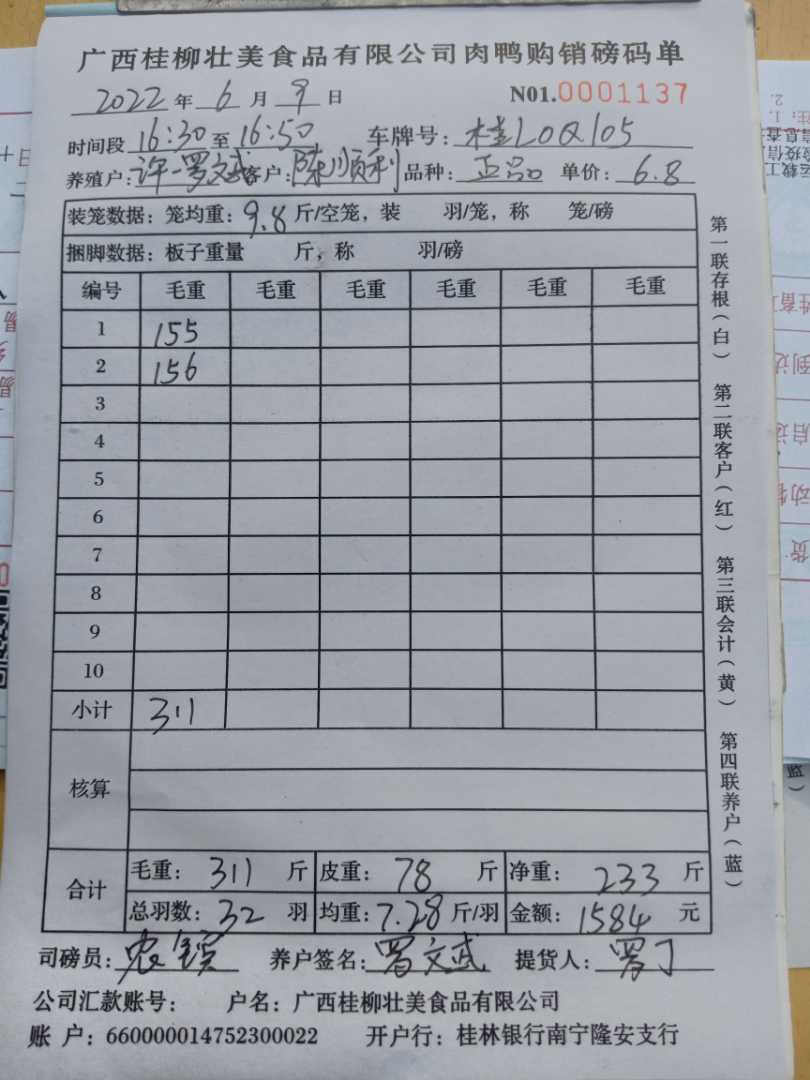 广西桂柳壮美食品有限公司肉鸭购销磅码单
2022年6月9日 N01.0001137
时间段16:30至16:50 车牌号：桂L0Q105
养殖户：许一罗文武 客户：陈顺利 品种：正品 单价：6.8
装笼数据：笼均重：9.8斤/空笼，装 羽/笼，称 笼/磅
捆脚数据：板子重量 斤，称 羽/磅
编号 毛重 毛重 毛重 毛重 毛重 毛重
1 155
2 156
3
4
5
6
7
8
9
10
小计 311
核算
合计 毛重：311斤 皮重：78斤 净重：233斤
总羽数：32羽 均重：7.28斤/羽 金额：1584元
司磅员：农 养户签名：罗文武 提货人：罗丁
公司汇款账号： 户名：广西桂柳壮美食品有限公司
账 户：660000014752300022 开户行：桂林银行南宁隆安支行
第一联存根（白） 第二联客户（红） 第三联会计（黄） 第四联养户（蓝）